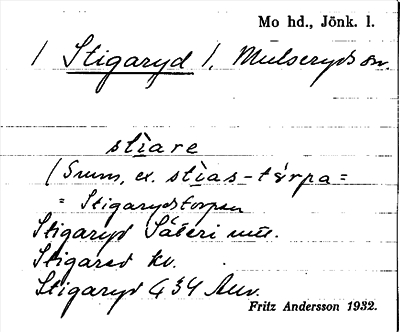 Mo hd., Jönk. l.
/ Stigaryd /, Mulseryds sn.
stìare
(Smm, ex. stìas-tórpa =
= Stigarydstorpen
Stigaryd Säteri
Stigared kv.
Stigaryd G 34 Anv.
Fritz Andersson 1932.